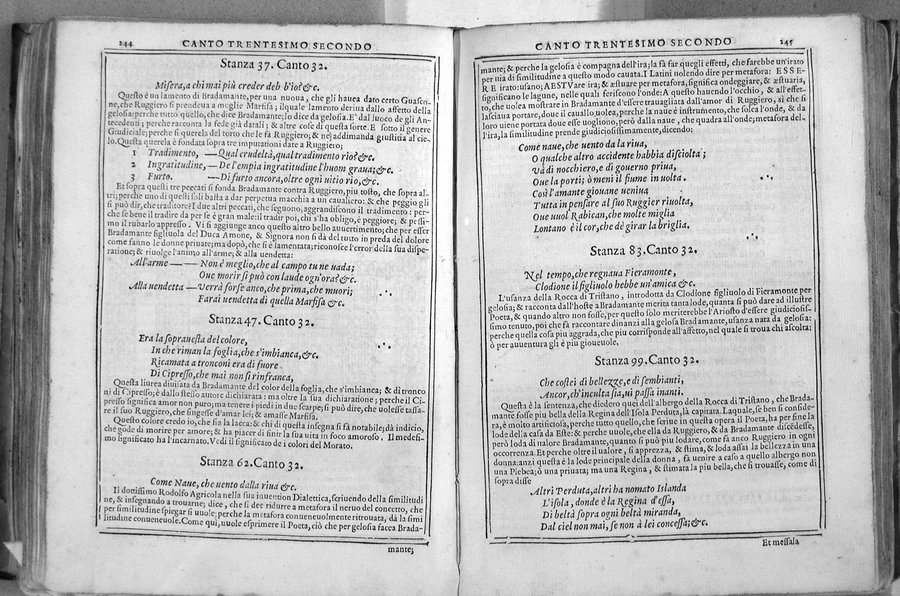 244 CANTO TRENTESIMO SECONDO
Stanza 37. Canto 32.
Misera, a chi mai più creder deb b'io? &c.
Questo è un lamento di Bradamante, per una nuoua, che gli hauea dato certo Guasco-
ne, che Ruggiero si prendeua a moglie Marfisa; ilquale lamento deriua dallo affetto della
gelosia; perche tutto quello, che dice Bradamante; lo dice da gelosa. E' dal luoco de gli An-
tecedenti; perche racconta la fede già datali; & altre cose di questa sorte. E sotto il genere
Giudiciale; perche si querela del torto che le fa Ruggiero; & nel addimanda giustitia al cie-
lo. Questa querela è fondata sopra tre imputationi date a Ruggiero;
1 Tradimento, — Qual crudeltà, qual tradimento rio? &c.
2 Ingratitudine, — De l'empia ingratitudine l'huom graua; &c.
3 Furto. — Di furto ancora, oltre ogni uitio rio, &c.
Et sopra questi tre peccati si fonda Bradamante contra Ruggiero, piu tosto, che sopra al-
tri; perche uno di questi soli basta a dar perpetua macchia a un caualiero: & che peggio gli
si può dir, che traditore? I due altri peccati, che seguono, aggrandiscono il tradimento: per-
che se bene il tradire da per se è gran male: il tradir poi, chi s'ha obligo, è peggiore; & pessi-
mo il rubarlo appresso. Vi si aggiunge anco questo altro bello auuertimento; che per esser
Bradamante figliuola del Duca Amone, & Signora non si dà del tutto in preda del dolore
come fanno le donne priuate; ma dopò, che si è lamentata; riconosce l'error della sua dispe-
ratione; & riuolge l'animo all'arme; & alla uendetta:
All'arme — — Non è meglio, che al campo tu ne uada;
Oue morir si può con laude ogn'ora? &c.
Alla uendetta — Verrà forse anco, che prima, che muori;
Farai uendetta di quella Marfisa &c.
Stanza 47. Canto 32.
Era la soprauesta del colore,
In che riman la foglia, che s'imbianca, &c.
Ricamata a tronconi era di fuore
Di Cipresso, che mai non si rinfranca,
Questa liurea diuisata da Bradamante del color della foglia, che s'imbianca; & di tronco
ni di Cipresso; è dallo stesso autore dichiarata: ma oltre la sua dichiaratione; perche il Ci-
presso significa amor non puro; ma tenere i piedi in due scarpe; si può dire, che uolesse tassa-
re il suo Ruggiero, che fingesse d'amar lei; & amasse Marfisa.
Questo colore credo io, che sia la lacca: & chi di questa insegna si fà notabile; dà indicio,
che gode di morire per amore; & ha piacer di finir la sua uita in foco amoroso. Il medesi-
mo significato ha l'incarnato. Vedi il significato de i colori del Morato.
Stanza 62. Canto 32.
Come Naue, che uento dalla riua &c.
Il dottissimo Rodolfo Agricola nella sua inuention Dialettica, scriuendo della similitudi
ne, & insegnando a trouarne; dice, che si dee ridurre a metafora il neruo del concetto, che
per similitudine spiegar si uuole; perche la metafora conueneuolmente ritrouata, dà la simi
litudine conueneuole. Come qui, uuole esprimere il Poeta, ciò che per gelosia facea Brada-
mante;
CANTO TRENTESIMO SECONDO 245
mante; & perche la gelosia è compagna dell'ira; la fa far quegli effetti, che farebbe un'irato
per uia di similitudine a questo modo cauata. I Latini uolendo dire per metafora: ESSE-
RE irato: usano, AESTVare ira; & æstuare per metafora, significa ondeggiare, & æstuaria,
significano le lagune, nelle quali feriscono l'onde: A questo hauendo l'occhio, & all'effet-
to, che uolea mostrare in Bradamante d'essere trauagliata dall'amor di Ruggiero, sì che si
lasciaua portare, doue il cauallo, uolea, perche la naue è instrumento, che solca l'onde, & da
loro uiene portata doue esse uogliono, però dalla naue, che quadra all'onde; metafora del-
l'ira, la similitudine prende giudiciosissimamente, dicendo:
Come naue, che uento da la riua,
O qualche altro accidente habbia disciolta;
Và di nocchiero, e di gouerno priua,
Oue la porti; ò meni il fiume in uolta.
Così l'amante giouane ueniua
Tutta in pensare al suo Ruggier riuolta,
Oue uuol Rabican, che molte miglia
Lontano è il cor, che dè girar la briglia.
Stanza 83. Canto 32.
Nel tempo, che regnaua Fieramonte,
Clodione il figliuolo hebbe un'amica &c.
L'usanza della Rocca di Tristano, introdotta da Clodione figliuolo di Fieramonte per
gelosia; & raccontata dall'hoste a Bradamante merita tanta lode, quanta si può dare ad illustre
Poeta, & quando altro non fosse, per questo solo meriterebbe l'Ariosto d'essere giudiciosis-
simo tenuto, poi che fà raccontare dinanzi alla gelosa Bradamante, usanza nata da gelosia:
perche quella cosa piu aggrada, che piu corrisponde all'affetto, nel quale si troua chi ascolta:
ò per auuentura gli è piu gioueuole.
Stanza 99. Canto 32.
Che costei di bellezze, e di sembianti,
Ancor, ch'inculta sia, ui passa inanti.
Questa è la sentenza, che diedero quei dell'albergo della Rocca di Tristano, che Brada-
mante fosse piu bella della Regina dell'Isola Perduta, là capitata. Laquale, se ben si conside-
ra, è molto artificiosa, perche tutto quello, che scriue in questa opera il Poeta, ha per fine la
lode della casa da Este: & perche uuole, che ella da Ruggiero, & da Bradamante discedesse,
però loda di ualore Bradamante, quanto si può piu lodare, come fà anco Ruggiero in ogni
occorrenza. Et perche oltre il ualore, si apprezza, & stima, & loda assai la bellezza in una
donna: anzi questa è la lode principale della donna, fà uenire a caso a quello albergo non
una Plebea; ò una priuata; ma una Regina, & stimata la piu bella, che si trouasse, come di
sopra disse
Altri Perduta, altri ha nomato Islanda
L'isola, donde è la Regina d'essa,
Di beltà sopra ogni beltà miranda,
Dal ciel non mai, se non à lei concessa; &c.
Et messala